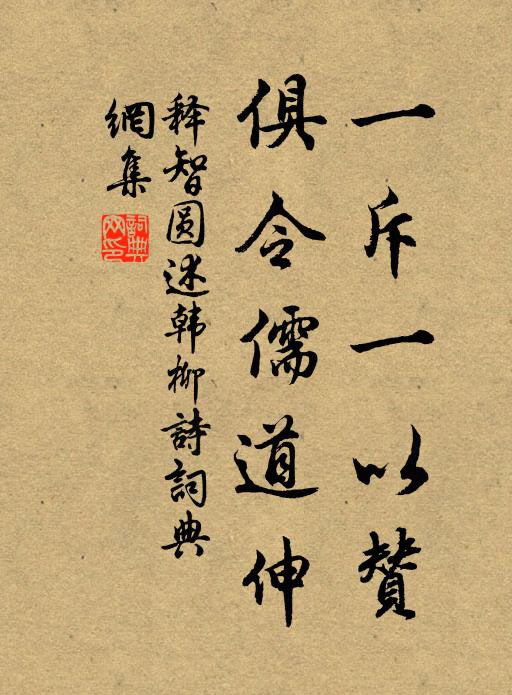 一斥一以贊
俱令儒道伸
释智圓述韩柳詩詞典
網集
詞典網印